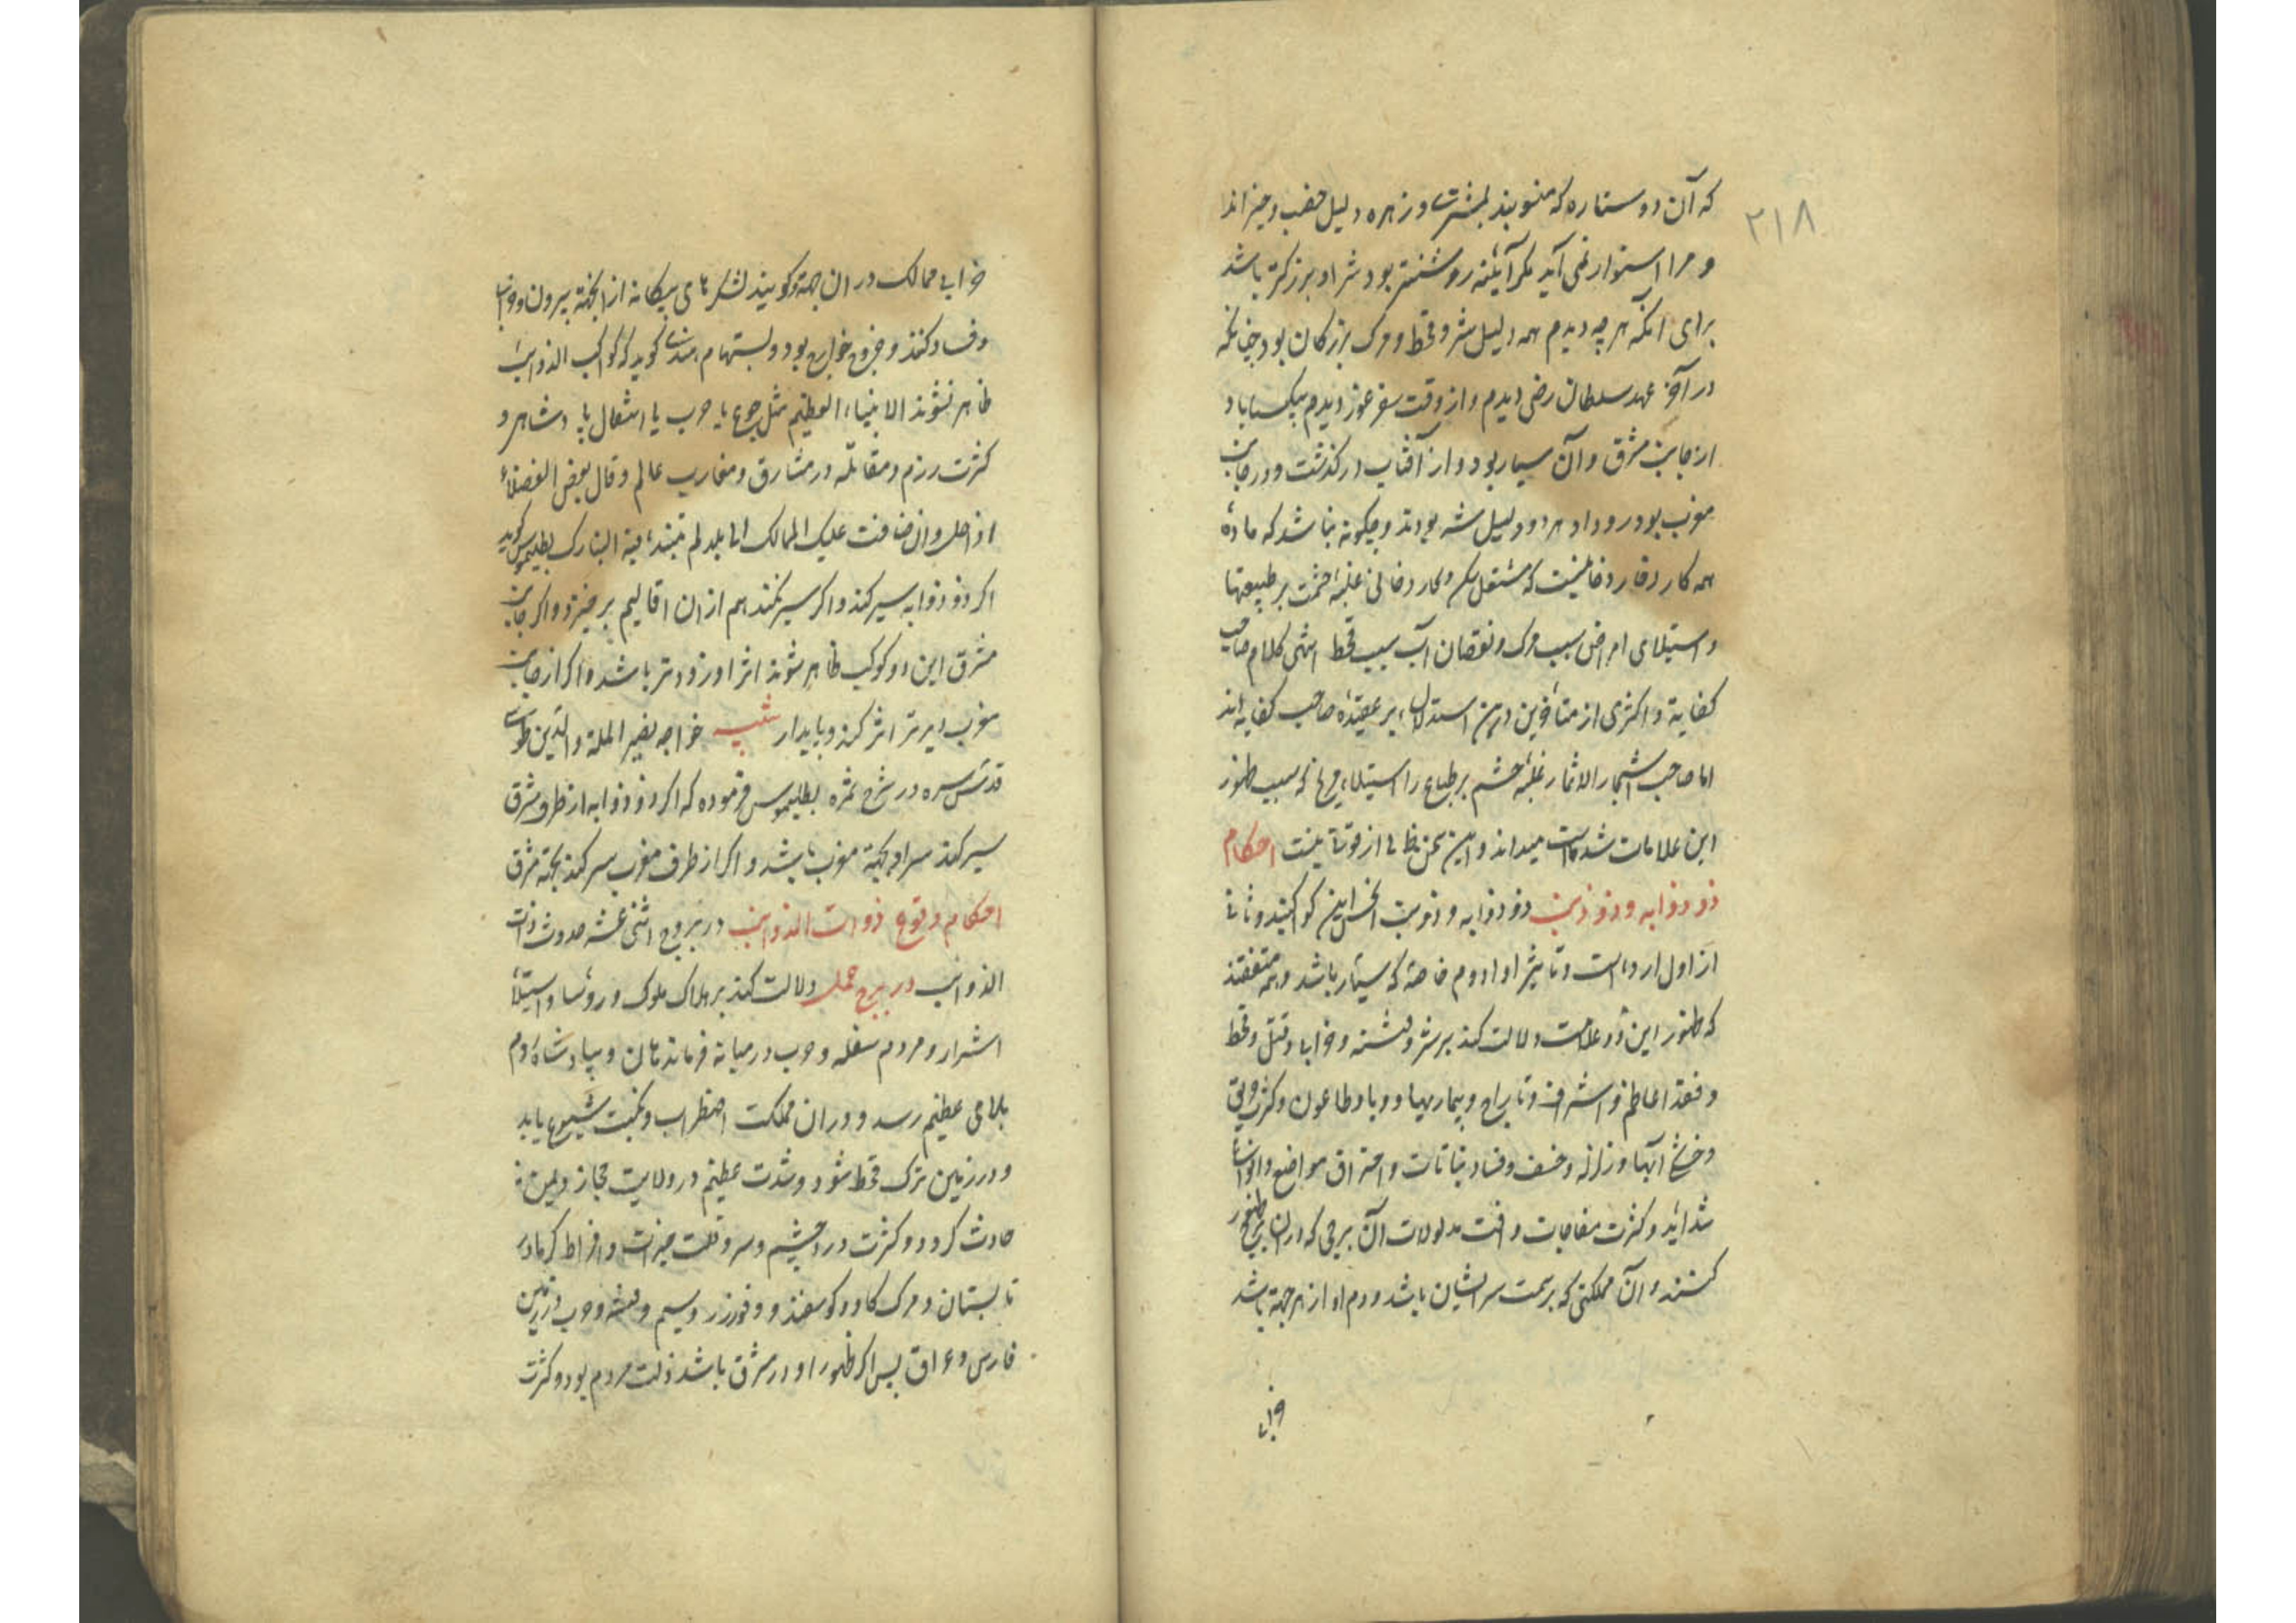 ۲۱۸
که آن دو ستاره که منسوبند بمشتری و زهره دلیل خصب و خیراند
و مرا استوار نمی آید مکر آینه روشنتر بود شر او بزرکتر باشد
برای آنکه هرچه دیدم همه دلیل شر و قحط و مرک بزرکان بود چنانکه
در آخر عهد سلطان رضی دیدم و از وقت سفر غوز دیدم
از جانب مشرق و آن سیار بود و از آفتاب درکذشت و در جانب
مغرب بود و هر دو دلیل شر بودند و چکونه نباشد که ماده
همه کار دخانیست که مشتعل غلبه بر طبیعتها
و استیلای امراض سبب مرک و نقصان آب سبب قحط انتهی کلام صاحب
کفایة و اکثری از متاخرین درین استدلال بر عقیده صاحب کفایه اند
اما صاحب اشجار الاثمار غلبه خشم بر طباع را استیلاء که سبب ظهور
این علامات شده است میداند و این سخن خالی از قوتی نیست احکام
ذو ذوابه و ذو ذنب ذو ذوابه و ذو ذنب انحس این کواکبند و ثانی
از اول اردا است و تاثیر او ادوم خاصه که سیار باشد و همه متفقند
که ظهور این دو علامت دلالت کند بر شر و فتنه و خرابی و قتل و قحط
و فقد اعاظم و اشراف و تاراج و بیماریها و وبا و طاعون و کثرت
و خشکی آبها و زلزله و خسف و فساد نباتات و احتراق مواضع و انواع
شداید و کثرت مفاجات و آفت مدلولات آن برجی که در ان برج ظهور
کنند و آن مملکتی که بر سمت سر ایشان باشد و دم او از هر جهة باشد
خرابی
خرابی ممالک در ان جهة و کویند لشکرهای بیکانه از انجهة بیرون
و فساد کنند و خروج خوارج بود و هندی کوید که کواکب الذوائب
ظاهر نشوند الا بنباء العظیم مثل جوع یا حرب یا انتقال پادشاهی و
کثرت رزم و مقاتله در مشارق و مغارب عالم و قال بعض الفضلاء
علیک الممالک بطلیموس کوید
اکر ذو ذوابه سیر کند و اکر سیر نکند هم از ان اقالیم برخیزد و اکر جانب
مشرق این دو کوکب ظاهر شوند اثر او زودتر باشد و اکر از جانب
مغرب دیرتر اثر کند و پایدار تنبیه خواجه نصیر الملة و الدین طوسی
قدس سره در شرح ثمره بطلیموس فرموده که اکر ذو ذوابه از طرف مشرق
سیر کند سر او بجهة مغرب باشد و اکر از طرف مغرب سیر کند بجهة مشرق
احکام وقوع ذوات الذوائب در بروج اثنی عشر حدوث ذوات
الذوائب در برج حمل دلالت کند بر هلاک ملوک و رؤسا و استیلاء
اشرار و مردم سفله و حرب در میانه فرماندهان و بپادشاه روم
بلای عظیم رسد و در ان مملکت اضطراب و نکبت شیوع یابد
و در زمین ترک قحط شود و شدت عظیم در ولایت حجاز و یمن
حادث کردد و کثرت درد چشم و سر و قلت خیرات و افراط کرما در
تابستان و مرک کاو و کوسفند و وفور زر و سیم و فتنه و حرب در زمین
فارس و عراق پس اکر ظهور او در مشرق باشد ذلت مردم بود و کثرت